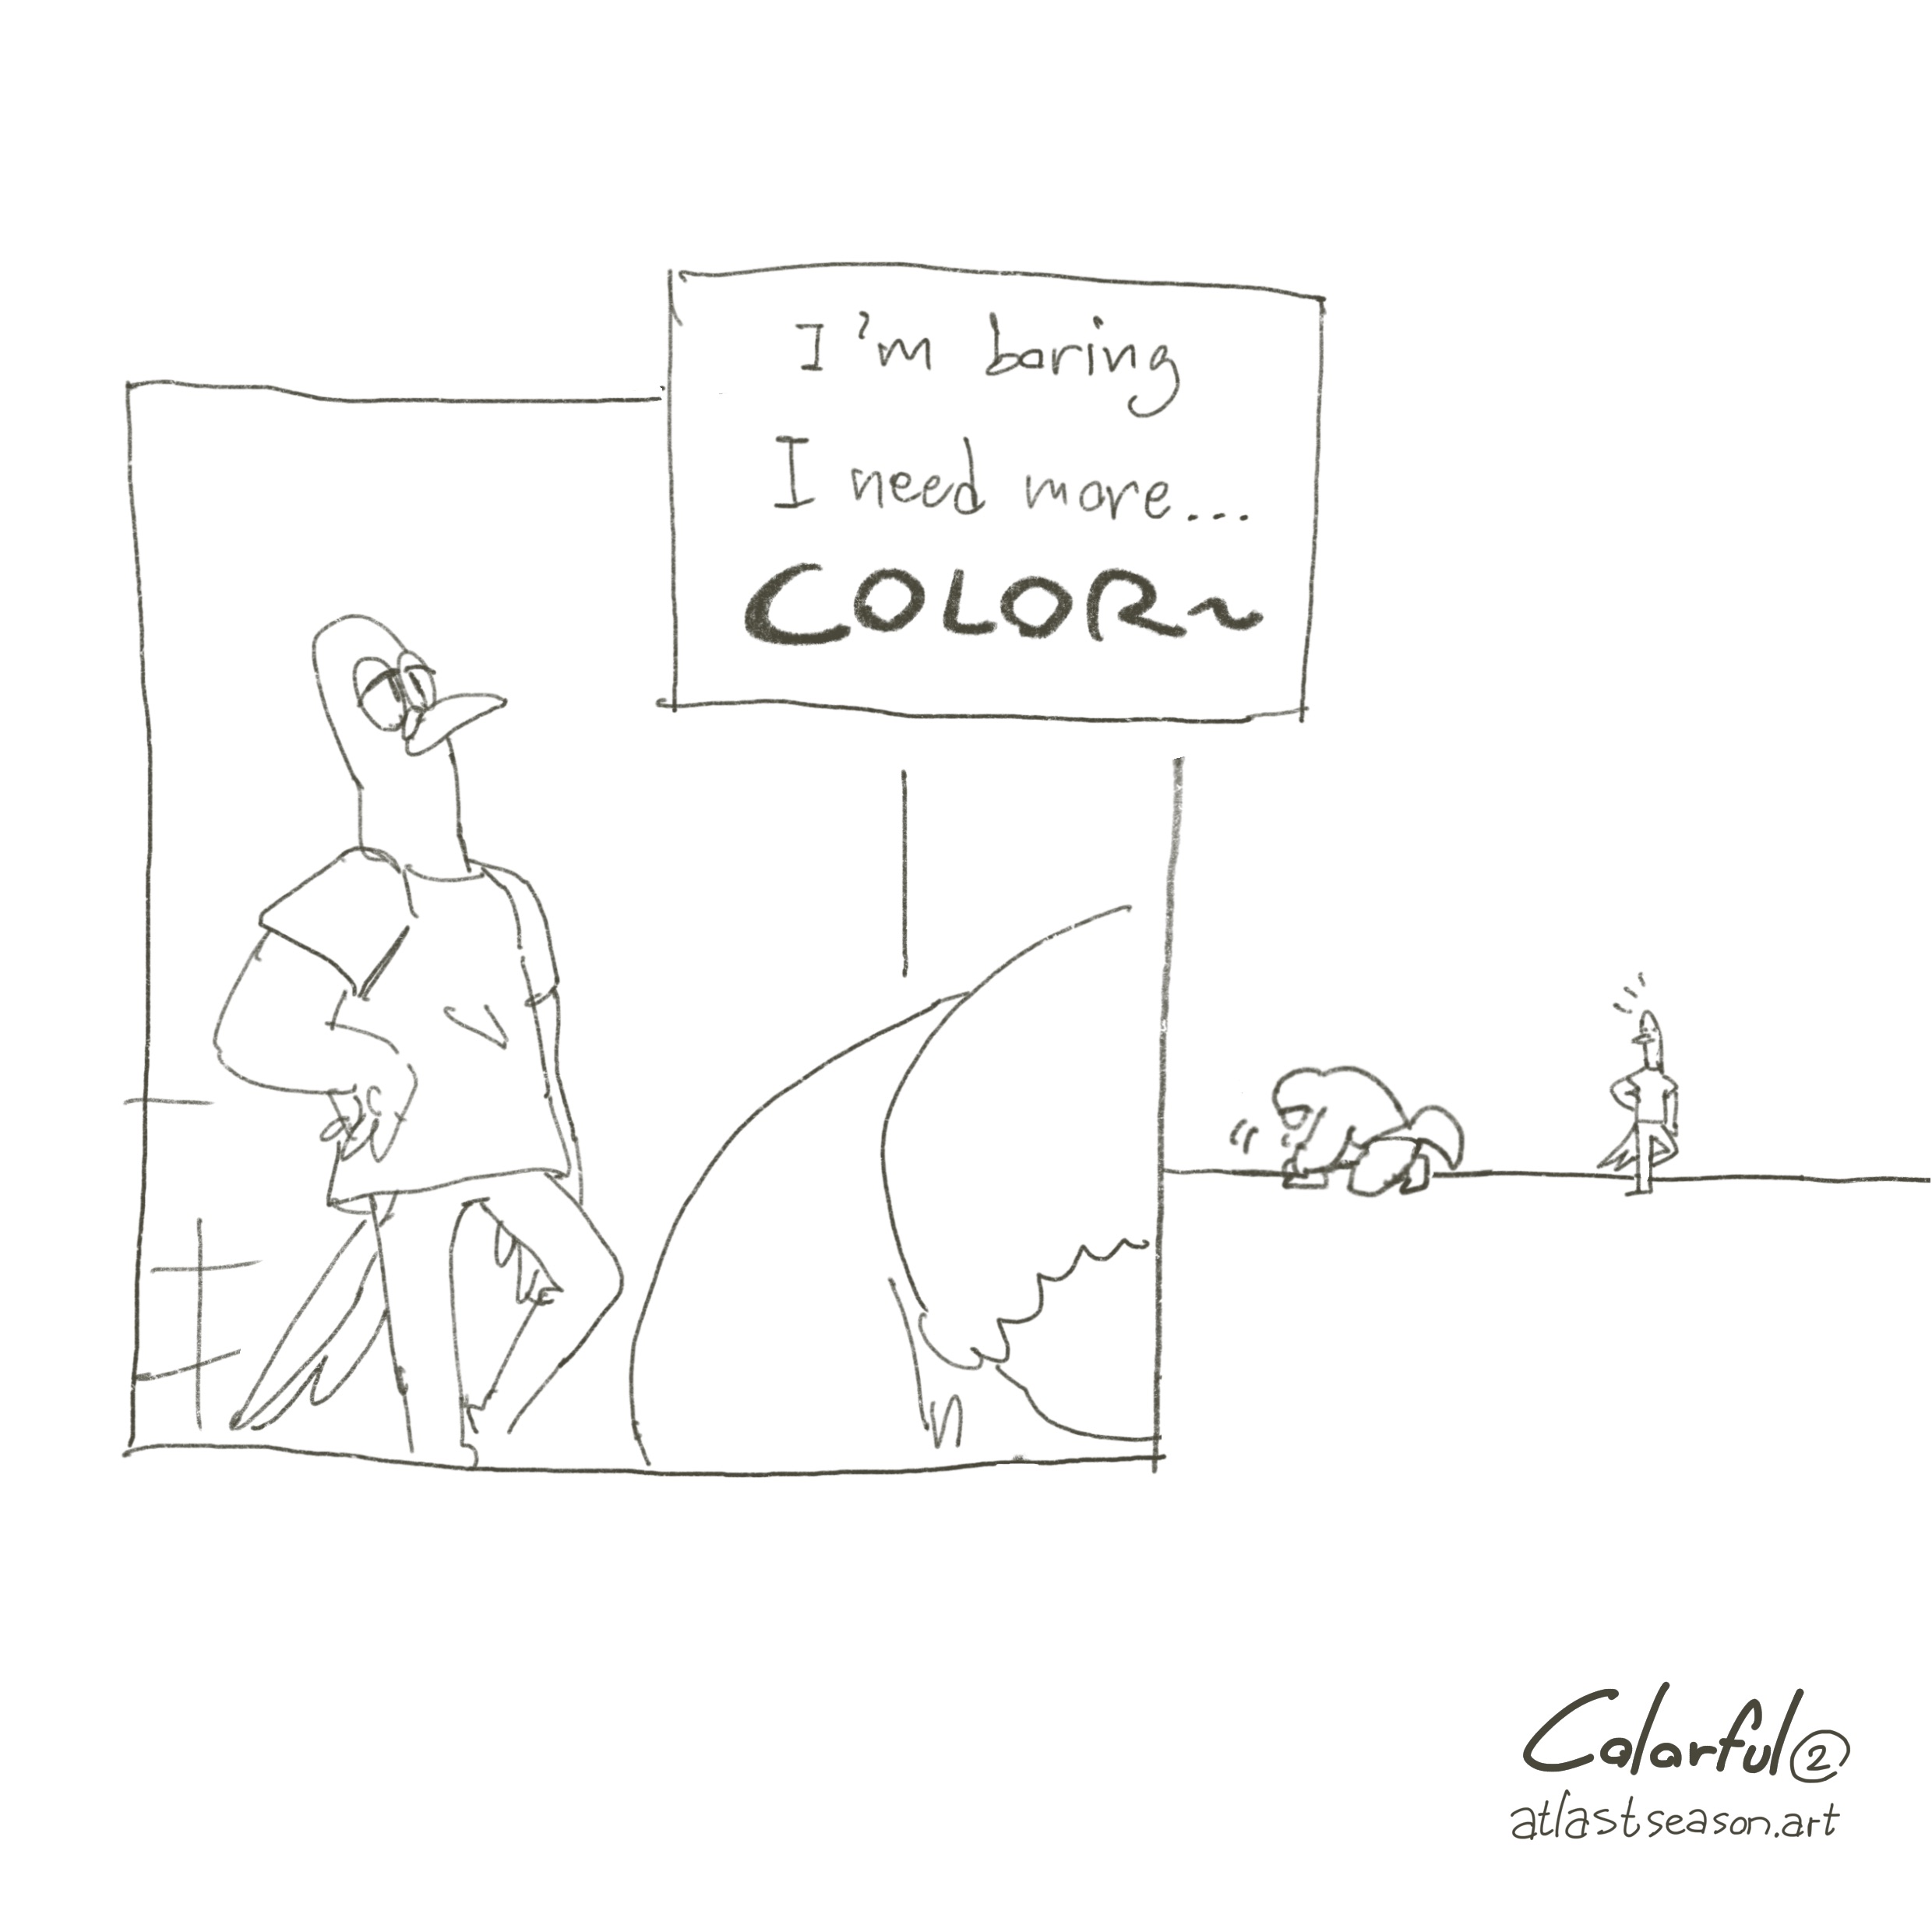 I'm boring
I need more...
COLOR~
Colorful ②
atlastseason.art